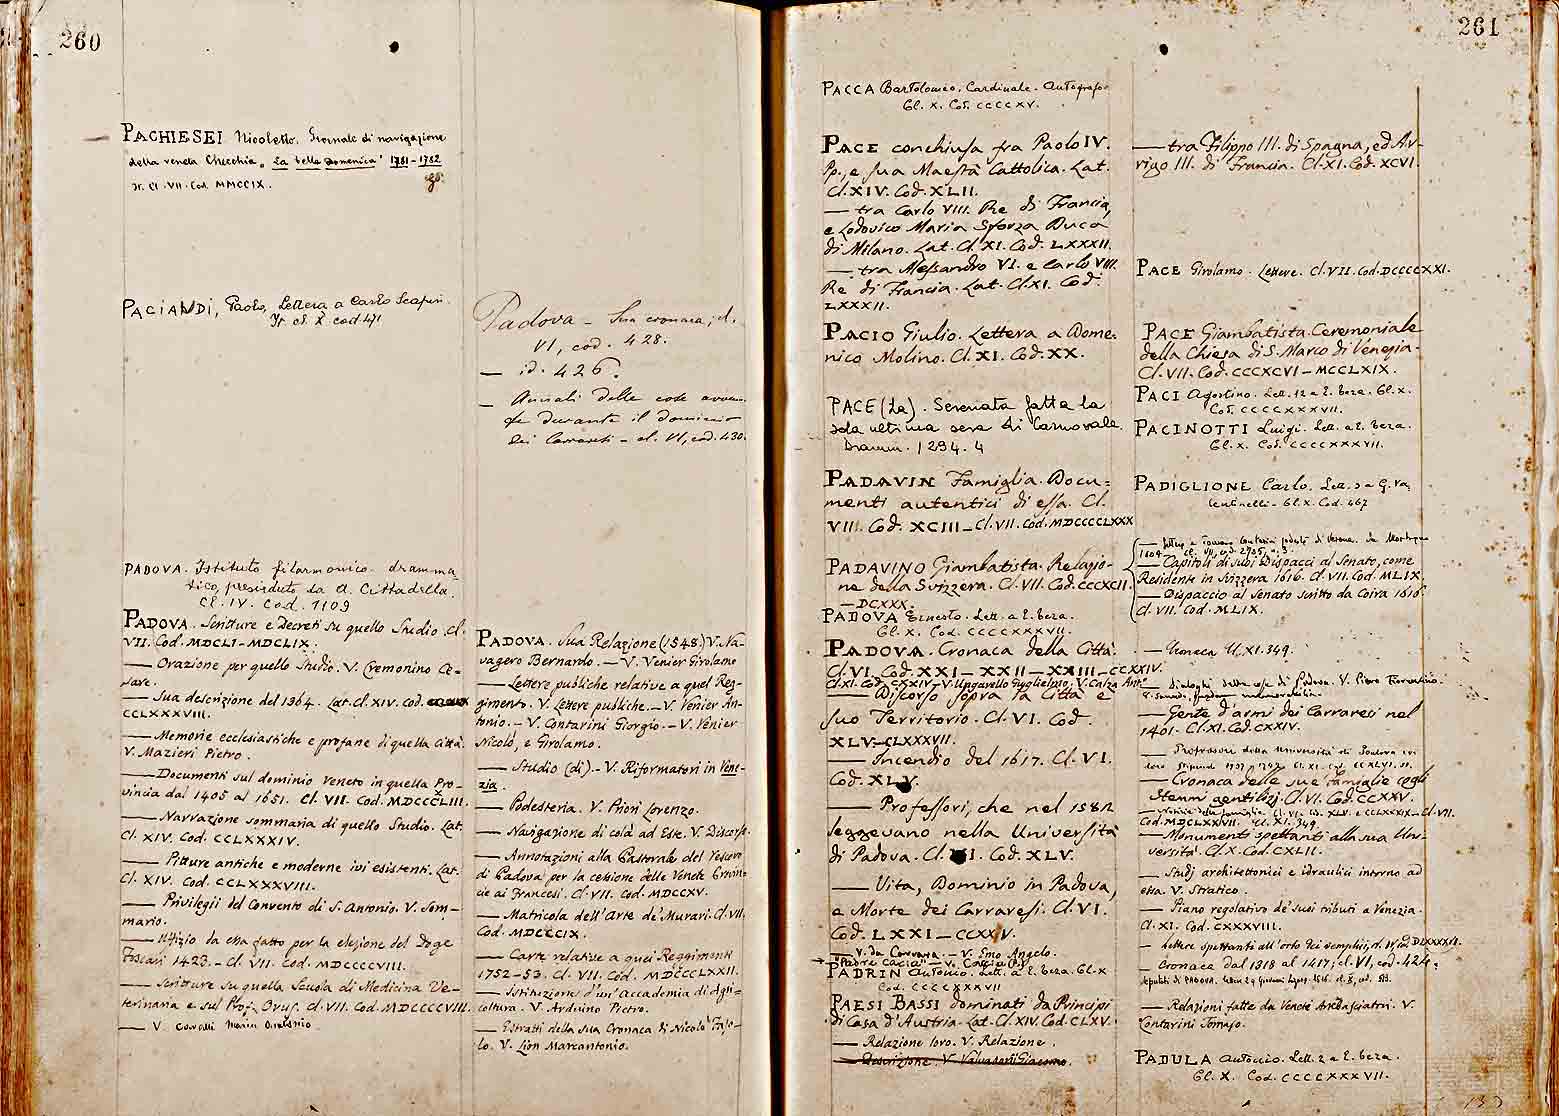 260
PACHIESEI Nicoletto. Giornale di navigazione
della veneta Checchia "La bella Domenica" 1781-1782
It. Cl. VII. Cod. MMCCIX.
PACIANDI, Paolo, Lettera a Carlo
It. cl. X cod. 471
PADOVA. Istituto filarmonico dramma-
tico, presieduto da A. Cittadella.
Cl. IV. Cod. 1109
PADOVA. Scritture e Decreti su quello Studio. Cl.
VII. Cod. MDCLI-MDCLIX.
— Orazione per quello Studio. V. Cremonino Ce-
sare.
— Sua descrizione del 1364. Lat. Cl. XIV. Cod.
CCLXXXVIII.
— Memorie ecclesiastiche e profane di quella Città.
V. Mazieri Pietro.
— Documenti sul dominio Veneto in quella Pro-
vincia dal 1405 al 1651. Cl. VII. Cod. MDCCCLIII.
— Narrazione sommaria di quello Studio. Lat.
Cl. XIV. Cod. CCLXXXIV.
— Pitture antiche e moderne ivi esistenti. Lat.
Cl. XIV. Cod. CCLXXXVIII.
— Privilegii del Convento di S. Antonio. V. Som-
mario.
— Uffizio da essa fatto per la elezione del Doge
Foscari 1423. - Cl. VII. Cod. MDCCCCVIII.
— Scritture su quella Scuola di Medicina Ve-
terinaria e sul Prof. Orus. Cl. VII. Cod. MDCCCCVIII.
— V. Cavalli Marin Antonio
Padova - Sua cronaca, cl.
VI, cod. 428.
— id. 426.
— Annali delle cose avvenu-
te durante il dominio
dei Carraresi - cl. VI, cod. 430.
PADOVA. Sua Relazione (1548.) V. Na-
vagero Bernardo. — V. Venier Girolamo
— Lettere pubbliche relative a quel Reg-
gimento. V. Lettere pubbliche. — V. Venier An-
tonio. — V. Contarini Giorgio. — V. Venier
Nicolò, e Girolamo.
— Studio (di). - V. Riformatori in Vene-
zia.
— Podesteria. V. Priori Lorenzo.
— Navigazione di colà ad Este. V. Discorso
— Annotazioni alla Pastorale del Vescovo
di Padova per la cessione delle Venete Provin-
cie ai Francesi. Cl. VII. Cod. MDCCXV.
— Matricola dell'Arte de' Murari. Cl. VII.
Cod. MDCCCIX.
— Carte relative a quei Reggimenti
1752-53. Cl. VII. Cod. MDCCCLXXII.
— Istituzione d'un'Accademia di Agri-
coltura. V. Arduino Pietro.
— Estratti della sua Cronaca di Nicolò Faso-
lo. V. Lion Marcantonio.
261
PACCA Bartolomeo. Cardinale. Autografo
Cl. X. Cod. CCCCXV.
PACE conchiusa fra Paolo IV.
Pp. e sua Maestà Cattolica. Lat.
Cl. XIV. Cod. XLII.
— tra Carlo VIII. Re di Francia,
e Lodovico Maria Sforza Duca
di Milano. Lat. Cl. XI. Cod. LXXXII.
— tra Alessandro VI. e Carlo VIII.
Re di Francia. Lat. Cl. XI. Cod.
LXXXII.
PACIO Giulio. Lettera a Dome-
nico Molino. Cl. XI. Cod. XX.
PACE (La). Serenata fatta la
sola ultima sera di Carnovale.
Dramm. 1294. 4
PADAVIN Famiglia. Docu-
menti autentici di essa. Cl.
VIII. Cod. XCIII — Cl. VII. Cod. MDCCCCLXXX
PADAVINO Giambatista. Relazio-
ne della Svizzera. Cl. VII. Cod. CCCXCII.
— DCXXX.
PADOVA Ernesto. Lett. a E. Beza.
Cl. X. Cod. CCCCXXXVII.
PADOVA. Cronaca della Città.
Cl. VI. Cod. XXI — XXII — XXIII — CCXXIV.
Cl. XI. Cod. CXXIV - V. Ungarello Guglielmo, V. Calza Ant.
— Discorso sopra la Città e
suo Territorio. Cl. VI. Cod.
XLV — CLXXXVII.
— Incendio del 1617. Cl. VI.
Cod. XLV.
— Professori, che nel 1582
leggevano nella Università
di Padova. Cl. VI. Cod. XLV.
— Vita, Dominio in Padova,
e Morte dei Carraresi. Cl. VI.
Cod. LXXI — CCXXV.
— V. da Carrara. — V. Emo Angelo.
PADRIN Antonio. Lett. a E. Beza. Cl. X
Cod. CCCCXXXVII
PAESI BASSI dominati da Principi
di Casa d'Austria. Lat. Cl. XIV. Cod. CLXV.
— Relazione loro. V. Relazione.
— Descrizione. V. Valvasori Giacomo.
— tra Filippo III. di Spagna, ed Ar-
rigo III. di Francia. Cl. XI. Cod. XCVI.
PACE Girolamo. Lettere. Cl. VII. Cod. DCCCCXXI.
PACE Giambatista. Ceremoniale
della Chiesa di S. Marco di Venezia.
Cl. VII. Cod. CCCXCVI — MCCLXIX.
PACI Agostino. Lett. 12 a E. Beza. Cl. X.
Cod. CCCCXXXVII.
PACINOTTI Luigi. Lett. a E. Beza.
Cl. X. Cod. CCCCXXXVII.
PADIGLIONE Carlo. Lett. 2 a G. Va-
lentinelli - Cl. X. Cod. 467
— Capitoli di suoi Dispacci al Senato, come
Residente in Svizzera 1616. Cl. VII. Cod. MLIX.
— Dispaccio al Senato scritto da Coira 1616
Cl. VII. Cod. MLIX.
— Cronaca Cl. XI. 349.
— Gente d'armi dei Carraresi nel
1401. Cl. XI. Cod. CXXIV.
— Professori della Università di Padova
— Cronaca delle sue Famiglie cogli
Stemmi gentilizj. Cl. VI. Cod. CCXXV.
Cod. MDCLXXVII. Cl. XI. 349.
— Monumenti spettanti alla sua Uni-
versità. Cl. X. Cod. CXLII.
— Studj architettonici e idraulici intorno ad
essa. V. Stratico.
— Piano regolativo de' suoi tributi a Venezia.
Cl. XI. Cod. CXXXVIII.
— Lettere spettanti all'orto dei semplici, cl. IV, cod. DLXXXXVI.
— Cronaca dal 1318 al 1417; cl. VI, cod. 424.
— Relazioni fatte da Veneti Ambasciatori. V.
Contarini Tomaso.
PADULA Antonio. Lett. 2 a E. Beza.
Cl. X. Cod. CCCCXXXVII.